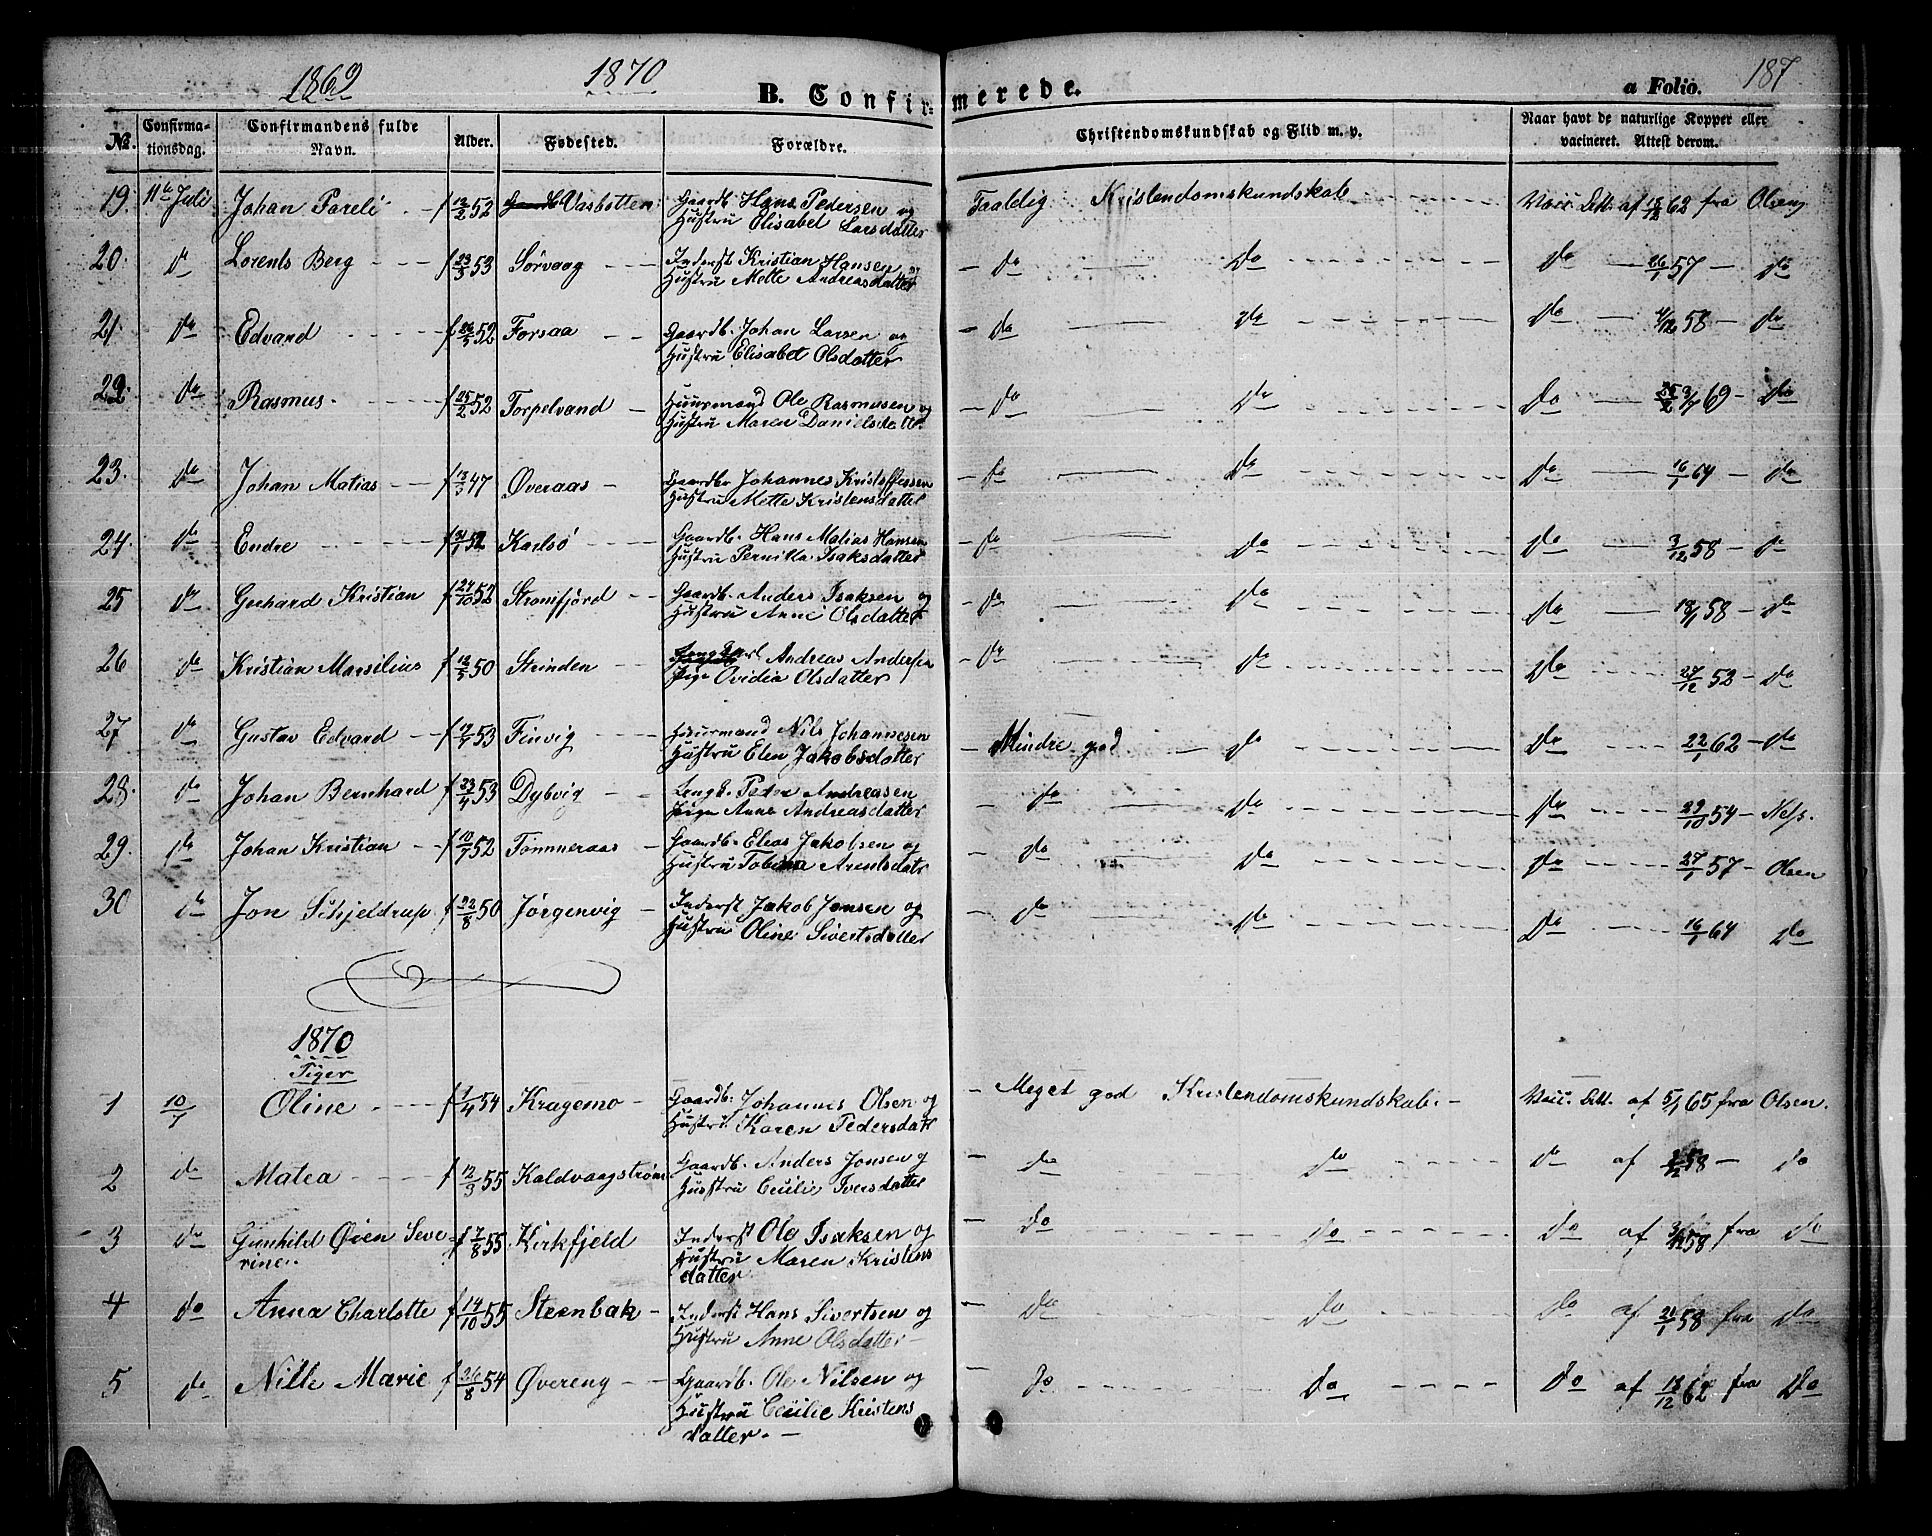 1869 1870 B. Confirmerede. a Folio. 187
No. Confirmationsdag. Confirmandens fulde Navn. Alder. Fødested. Forældre. Christendomskundskab og Flid m. v. Naar havt de naturlige Kopper eller vacineret. Attest derom.
19. 11te Juli Johan Pareli f 12/2 52 Vasbotten Gaardb. Hans Pedersen og Taalelig Kristendomskundskab Vacc. Att. af 18/8 62 fra Olsen
Hustru Elisabet Larsdatter
20. do Lorents Berg f 23/3 53 Sørvaag Inderst Kristian Hansen og do do do 26/1 57 do
Hustru Mette Andreasdatter
21. do Edvard f 26/5 52 Forsaa Gaardb. Johan Larsen og do do do 4/12 58 do
Hustru Elisabet Olsdatter
22. do Rasmus f 25/2 52 Torpelvand Huusmand Ole Rasmusen og do do do 69 do
Hustru Maren Danielsdatter
23. do Johan Matias f 13/3 47 Øveraas Gaardbr Johannes Kristoffersen do do do 16/1 64 do
Hustru Mette Kristensdatter
24. do Endre f 31/1 52 Karlsö Gaardb. Hans Matias Hansen do do do 3/12 58 do
Hustru Pernilla Isaksdatter
25 do Gerhard Kristian f 24/10 52 Stromfjord Gaardb. Anders Isaksen og do do do 18/1 58 do
Hustru Anne Olsdatter
26 do Kristian Marsilius f 12/5 50 Strinden Ungkarl Andreas Andersen do do do 27/12 52 do
Pige Ovidia Olsdatter
27 do Gustav Edvard f 19/7 53 Finvig Huusmand Nils Johannesen Mindre god do do 22/1 62 do
Hustru Elen Jakobsdatter
28. do Johan Bernhard f 23/4 53 Dybvig Ungk. Peder Andreasen do do do 29/10 54 Ness.
Pige Anne Andreasdatter
29. do Johan Kristian f 10/7 52 Tømmeraas Gaardb. Elias Jakobsen og do do do 27/1 57 Olsen
Hustru Tobina Arentsdatr
30 do Jon Schjeldrup f 22/8 50 Jørgenvig Inderst Jakob Jonsen og do do do 16/1 64 do
Hustru Oline Sivertsdatter
1870
Piger
1 10/7 Oline f 1/4 54 Kragemo Gaardb. Johannes Olsen og Meget god Kristendomskundskab. Vacc. Att. af 5/1 65 fra Olsen.
Hustru Karen Pedersdatr
2 do Matea f 12/3 55 Kaldvaagstrøm Gaardb. Anders Jonsen og do do do af 58 do
Hustru Cecilie Iversdatter
3 do Gunhild Øien Seve- f 7/8 55 Kirkfjeld Inderst Ole Isaksen og do do do af 3/12 58 fra do
rine. Hustru Maren Kristens
datter
4 do Anna Charlotte f 14/10 55 Steenbak Inderst Hans Sivertsen og do do do af 21/1 58 fra do
Hustru Anne Olsdatter
5 do Nille Marie f 26/8 54 Øvereng Gaardb. Ole Nilsen og do do do af 13/12 62 fra do
Hustru Cecilie Kristens
datter.